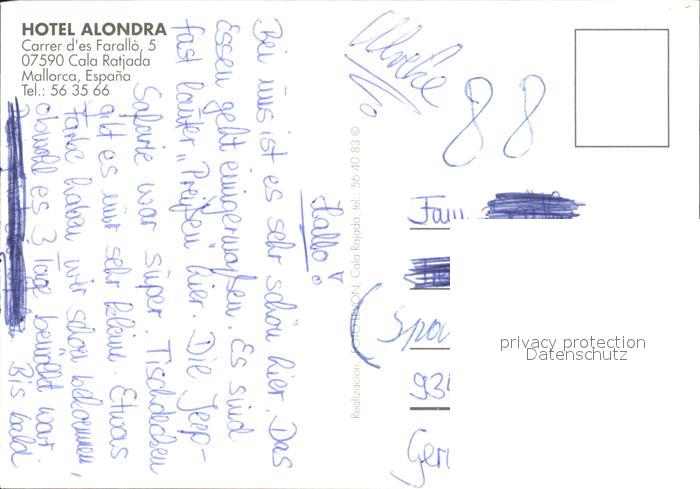 HOTEL ALONDRA
Carrer d'es Farallò, 5
07590 Cala Ratjada
Mallorca, España
Tel.: 56 35 66
Hallo!
Bei uns ist es sehr schön hier. Das
Essen geht einigermaßen. Es sind
fast lauter "Preißen" hier. Die Jeep-
Safarie war super. Tischdecken
gibt es nur sehr kleine. Etwas
Farbe haben wir schon bekommen,
obwohl es 3 Tage bewölkt war.
Bis bald
Realizacion: Cala Rajada, tel.: 56 40 83 ©
88
Fam.
privacy protection
Datenschutz